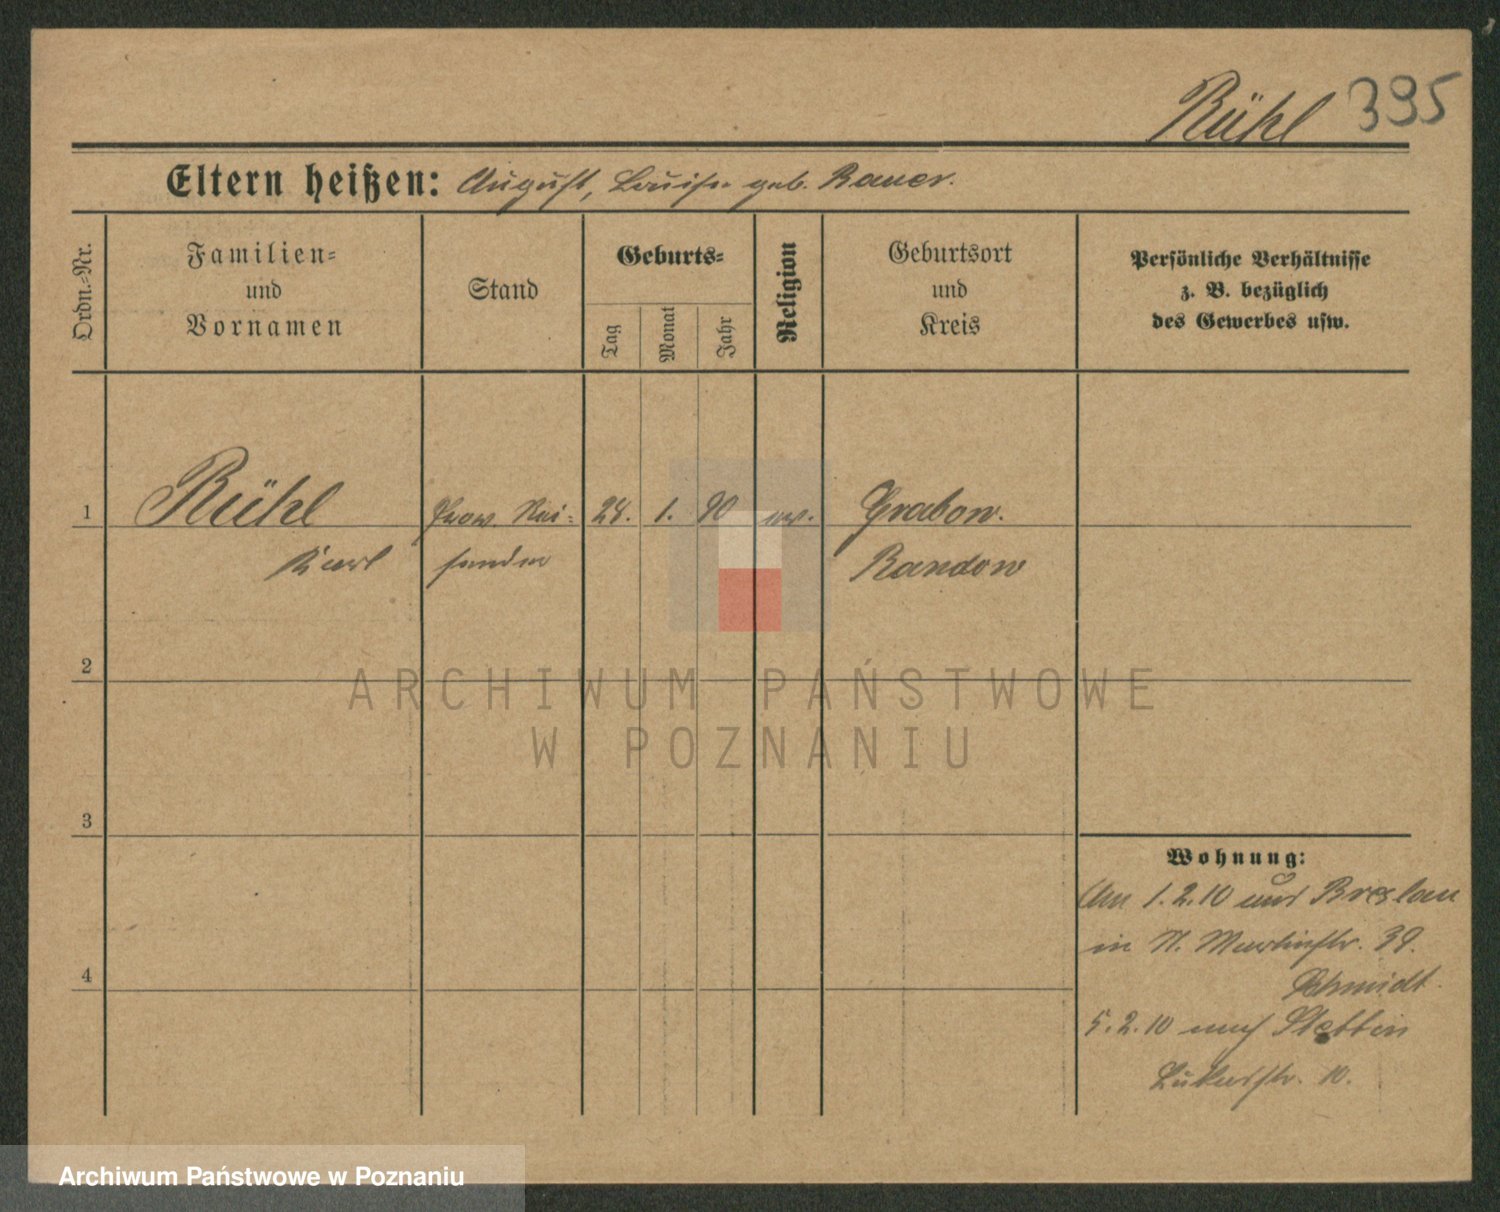 Rühl 395
Eltern heißen: August, Louise geb. Bauer.
Ordn.=Nr.
Familien=
und
Vornamen
Stand
Geburts=
Tag
Monat
Jahr
Religion
Geburtsort
und
Kreis
Persönliche Verhältnisse
z. B. bezüglich
des Gewerbes usw.
1 Rühl Prov. Rei= 24. 1. 90 ev. Grabow.
Karl sender Randow
2
ARCHIWUM PAŃSTWOWE
W POZNANIU
3
Wohnung:
Am 1.2.10 aus Breslau
in St. Martinstr. 39.
4
Schmidt.
5.2.10 nach Stettin
10.
Archiwum Państwowe w Poznaniu